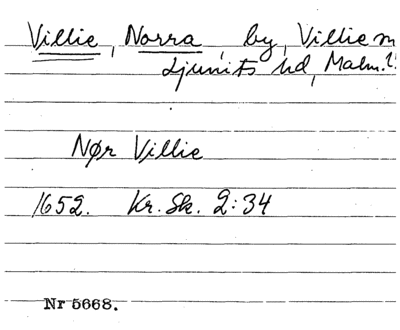 Villie, Norra, by, Villie
Ljunits hd, Malm.
Nør Villie
1652. Kr. Sk. 2:34
Nr 5668.